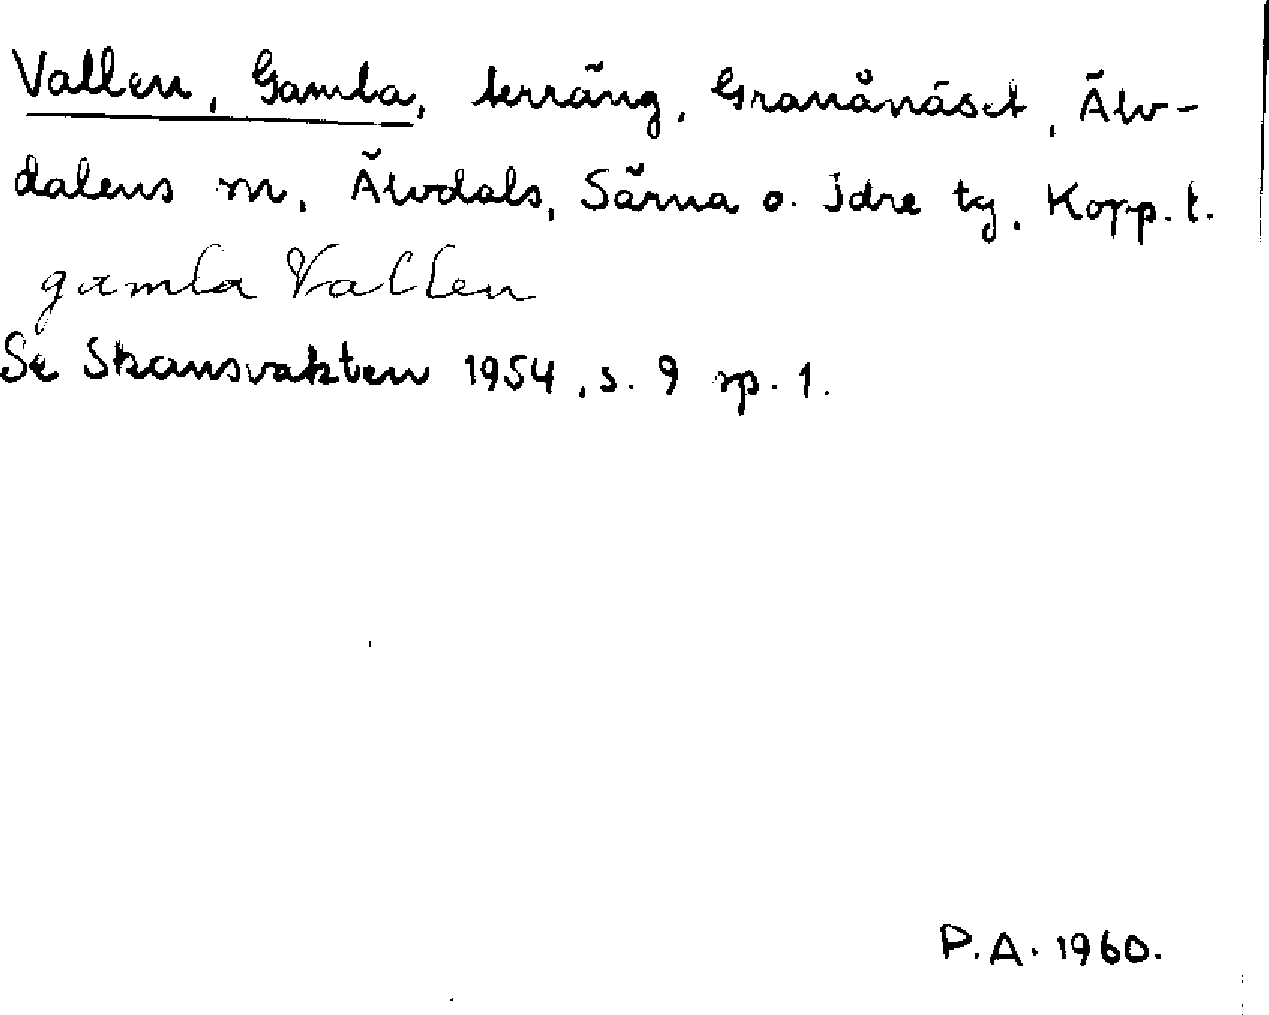 Vallen, Gamla, terräng, Granånäset, Älv-
dalens sn, Älvdals, Särna o. Idre tg, Kopp. l.
gamla Vallen
Se Skansvakten 1954, s. 9 sp. 1.
P.A. 1960.